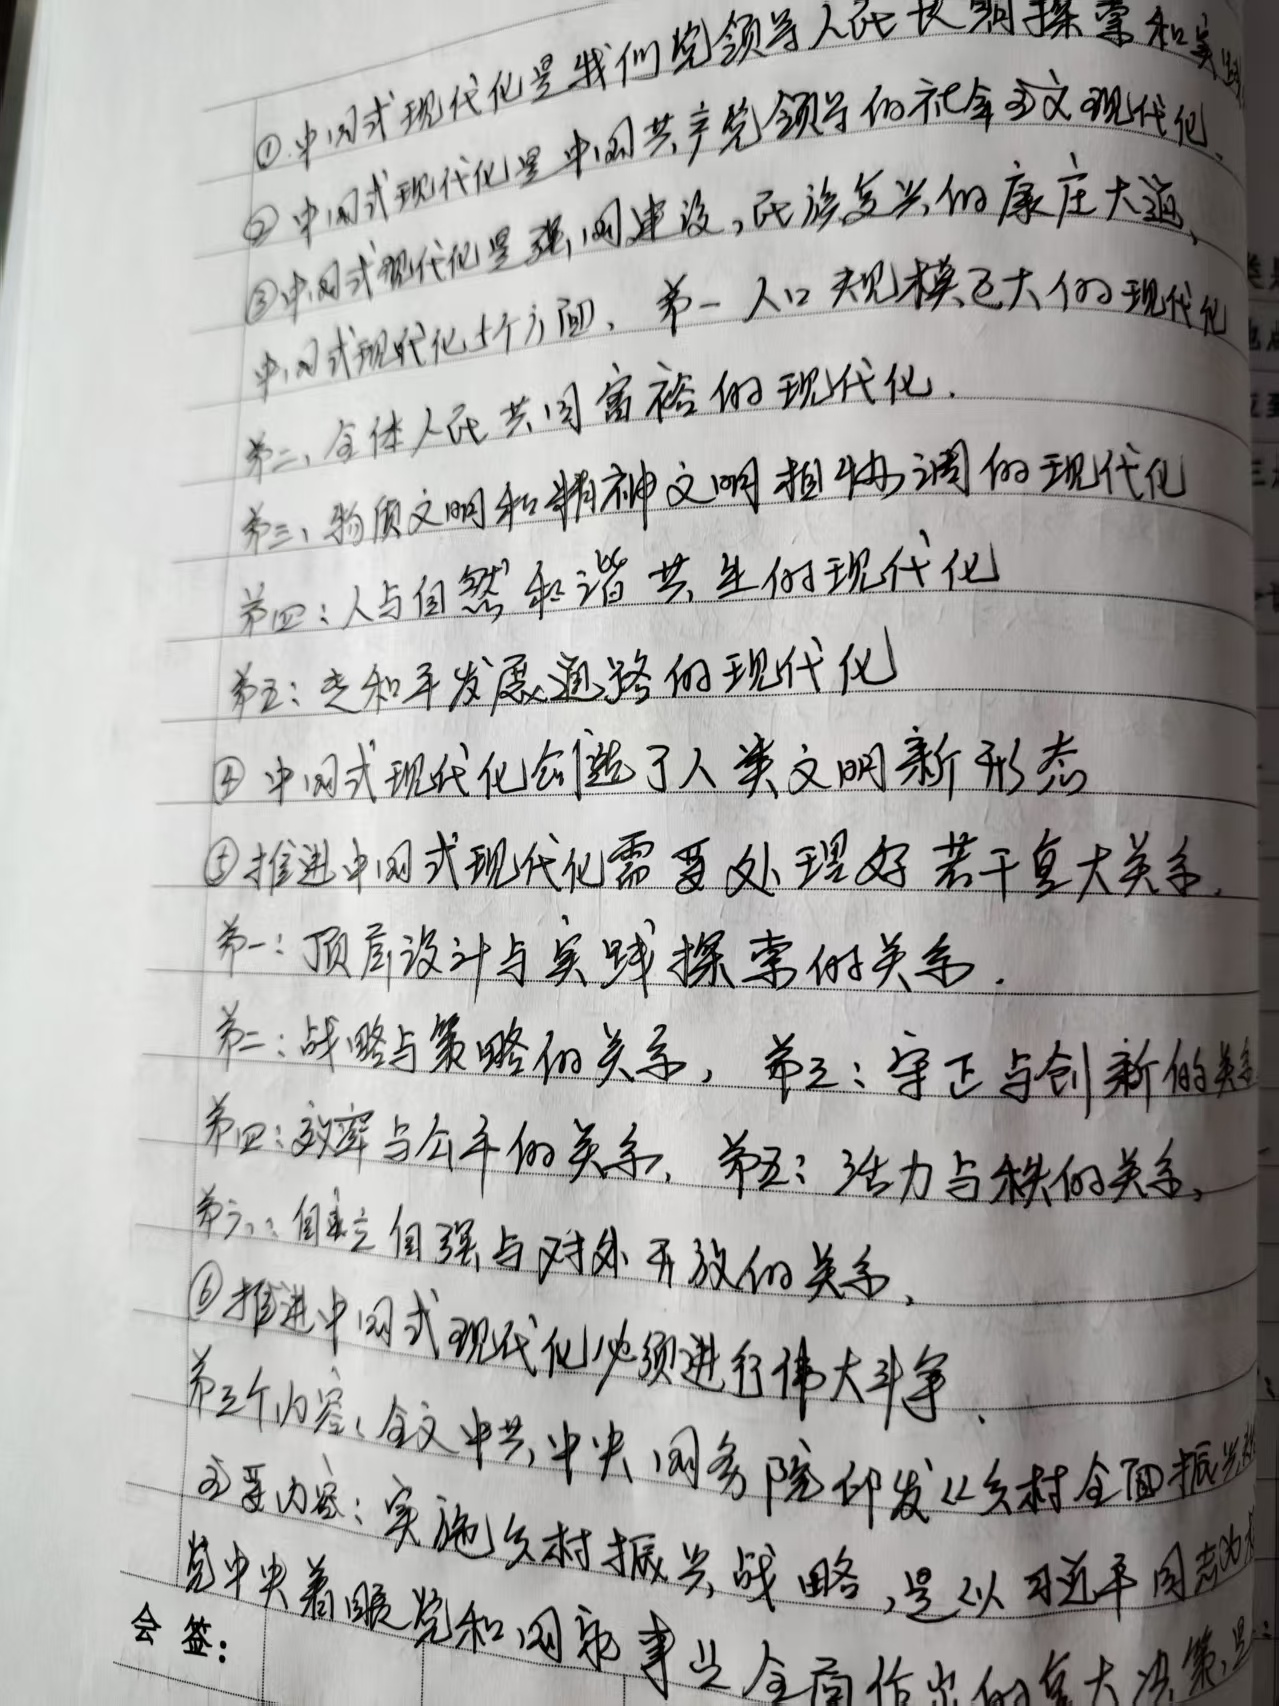 ①中国式现代化是我们党领导人民长期探索和实践
②中国式现代化是中国共产党领导的社会主义现代化、
③中国式现代化是强国建设,民族复兴的康庄大道、
中国式现代化五个方面、第一人口规模巨大的现代化
第二、全体人民共同富裕的现代化.
第三、物质文明和精神文明相协调的现代化
第四:人与自然和谐共生的现代化
第五:走和平发展道路的现代化
④中国式现代化创造了人类文明新形态
⑤推进中国式现代化需要处理好若干重大关系.
第一:顶层设计与实践探索的关系.
第二:战略与策略的关系, 第三:守正与创新的关系
第四:效率与公平的关系, 第五:活力与秩的关系,
第六:自立自强与对外开放的关系,
⑥推进中国式现代化必须进行伟大斗争.
第三个内容:全文中共中央国务院印发《乡村全面振兴
主要内容:实施乡村振兴战略,是以习近平同志为
党中央着眼党和国家事业全局作出的重大决策,是
会签: